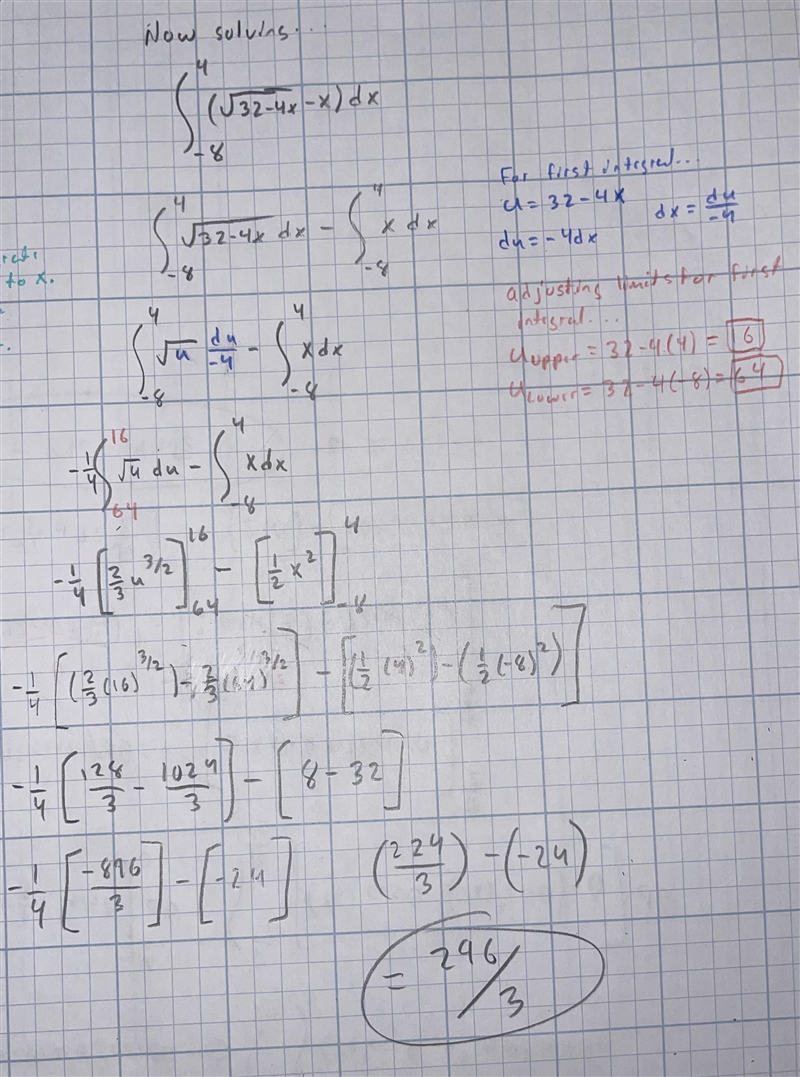 Now solving...
∫_{-8}^{4} (√(32-4x) - x) dx
For first integral...
u = 32 - 4x
dx = du/-4
du = -4dx
∫_{-8}^{4} √(32-4x) dx - ∫_{-8}^{4} x dx
to x.
adjusting limits for first
integral...
u upper = 32-4(4) = 16
u lower = 32-4(-8) = 64
∫_{-8}^{4} √u du/-4 - ∫_{-8}^{4} x dx
-1/4 ∫_{64}^{16} √u du - ∫_{-8}^{4} x dx
-1/4 [2/3 u^{3/2}]_{64}^{16} - [1/2 x^2]_{-8}^{4}
-1/4 [(2/3 (16)^{3/2}) - 2/3 (64)^{3/2}] - [(1/2 (4)^2) - (1/2 (-8)^2)]
-1/4 [128/3 - 1024/3] - [8 - 32]
-1/4 [-896/3] - [-24] (224/3) - (-24)
= 296/3